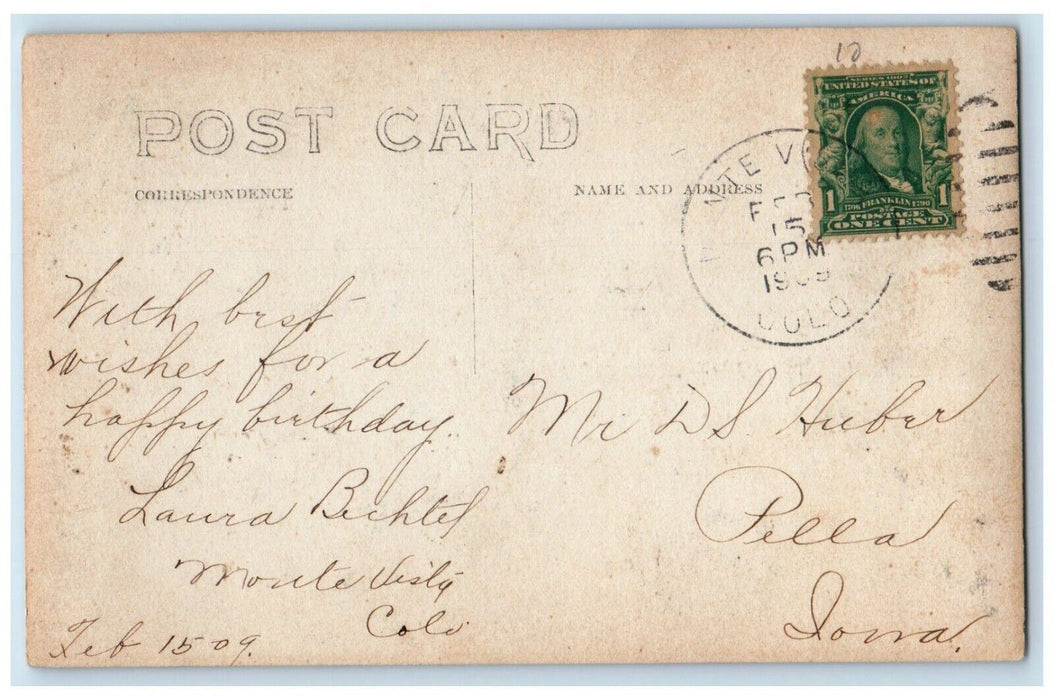 10
POST CARD
CORRESPONDENCE
NAME AND ADDRESS
SERIES 1902
UNITED STATES OF
AMERICA
1 1
1706 FRANKLIN 1790
POSTAGE
ONE CENT
MONTE VISTA
FEB
15
6 PM
1909
COLO
With best
wishes for a
happy birthday.
Laura Bechtel
Monte Vista
Colo
Feb 15 09.
Mr D S. Huber
Pella
Iowa.